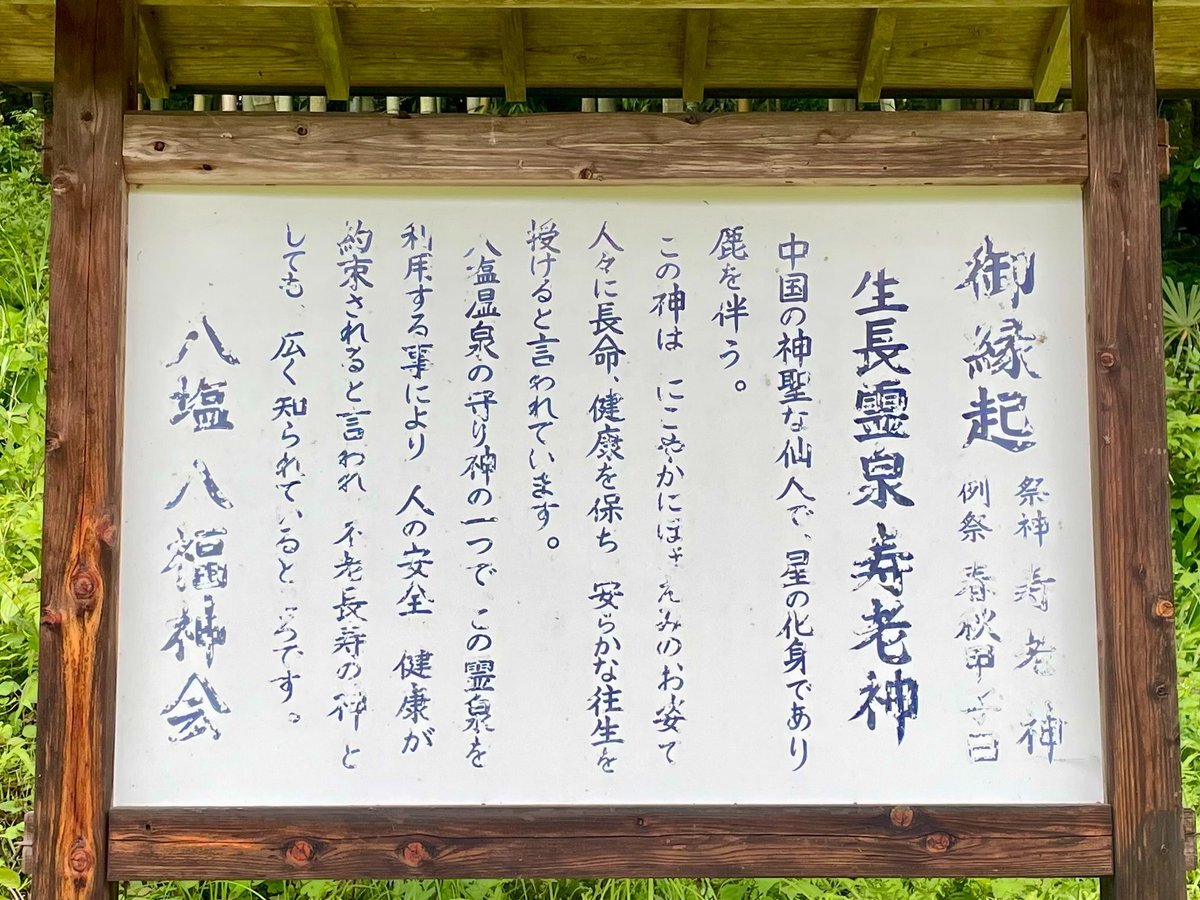 御縁起
祭神 寿老神
例祭 春秋甲子日
生長霊泉 寿老神
中国の神聖な仙人で、星の化身であり
鹿を伴う。
この神は にこやかにほゝえみのお姿で
人々に長命、健康を保ち 安らかな往生を
授けると言われています。
八塩温泉の守り神の一つで この霊泉を
利用する事により 人の安全 健康が
約束されると言われ 不老長寿の神と
しても、広く知られているところです。
八塩八福神会